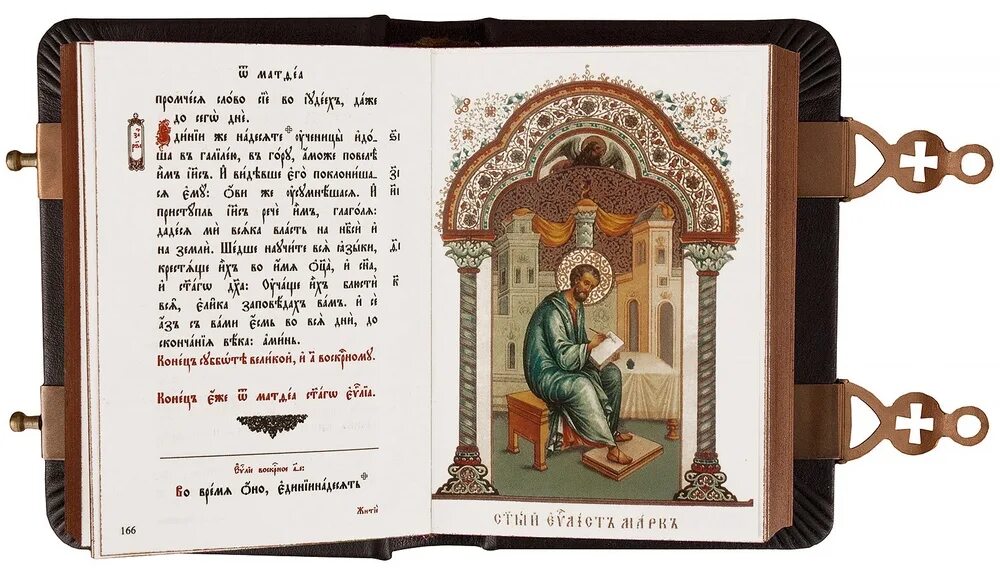 Ѿ матѳеа
промчесѧ слово сїе во їꙋдеехъ, даже
до сегѡ дне.
Єдинїи же надесѧте ᲂученицы идо-
ша въ галїлею, въ гору, аможе повелѣ
имъ їи҃съ. И видѣвше его поклониша-
сѧ емꙋ: ѻви же ᲂусꙋмнѣшасѧ. И
приступль їи҃съ рече имъ, глаголѧ:
дадесѧ ми всѧка власть на нб҃си и
на земли. Шедше научите всѧ ꙗзыки,
крестѧще ихъ во имѧ ѻц҃а, и сн҃а,
и ст҃агѡ дх҃а: Оучаще ихъ блюсти
всѧ, елика заповѣдахъ вамъ. и се
азъ съ вами есмь во всѧ дни, до
скончанїѧ вѣка: аминь.
Конецъ сꙋббѡтѣ великой, и а҃ воскр҇ном꙼ꙋ.
Конецъ еже ѿ матѳеа ст҃агѡ еѵ҃лїа.
Еѵ҃лїе воскр҇ное а҃.
Во времѧ ѻно, единїинадесѧть
Житїй
166
СТ҃ЫЙ ЕѴ҃ЛІСТЪ МАРКЪ